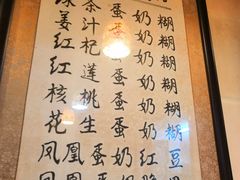 茶蛋奶糊
姜汁蛋奶糊
红杞蛋奶糊
红莲蛋奶糊
核桃蛋奶糊
花生蛋奶糊
凤凰蛋奶红豆